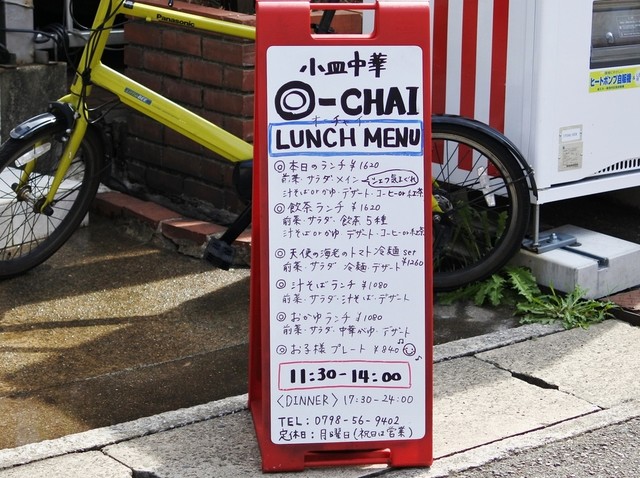 Panasonic
小皿中華
◎-CHAI
オーチャイ
LUNCH MENU
◎本日のランチ ¥1620
前菜・サラダ・メイン・シェフ気まぐれ
汁そばorかゆ・デザート・コーヒーor紅茶
◎飲茶ランチ ¥1620
前菜・サラダ・飲茶5種
汁そばorかゆ・デザート・コーヒーor紅茶
◎天使の海老のトマト冷麺 set
前菜・サラダ・冷麺・デザート ¥1260
◎汁そばランチ ¥1080
前菜・サラダ・汁そば・デザート
◎おかゆランチ ¥1080
前菜・サラダ・中華がゆ・デザート
◎お子様プレート ¥840
11:30-14:00
〈DINNER〉17:30-24:00
TEL: 0798-56-9402
定休日:月曜日(祝日は営業)
ヒートポンプ自販機